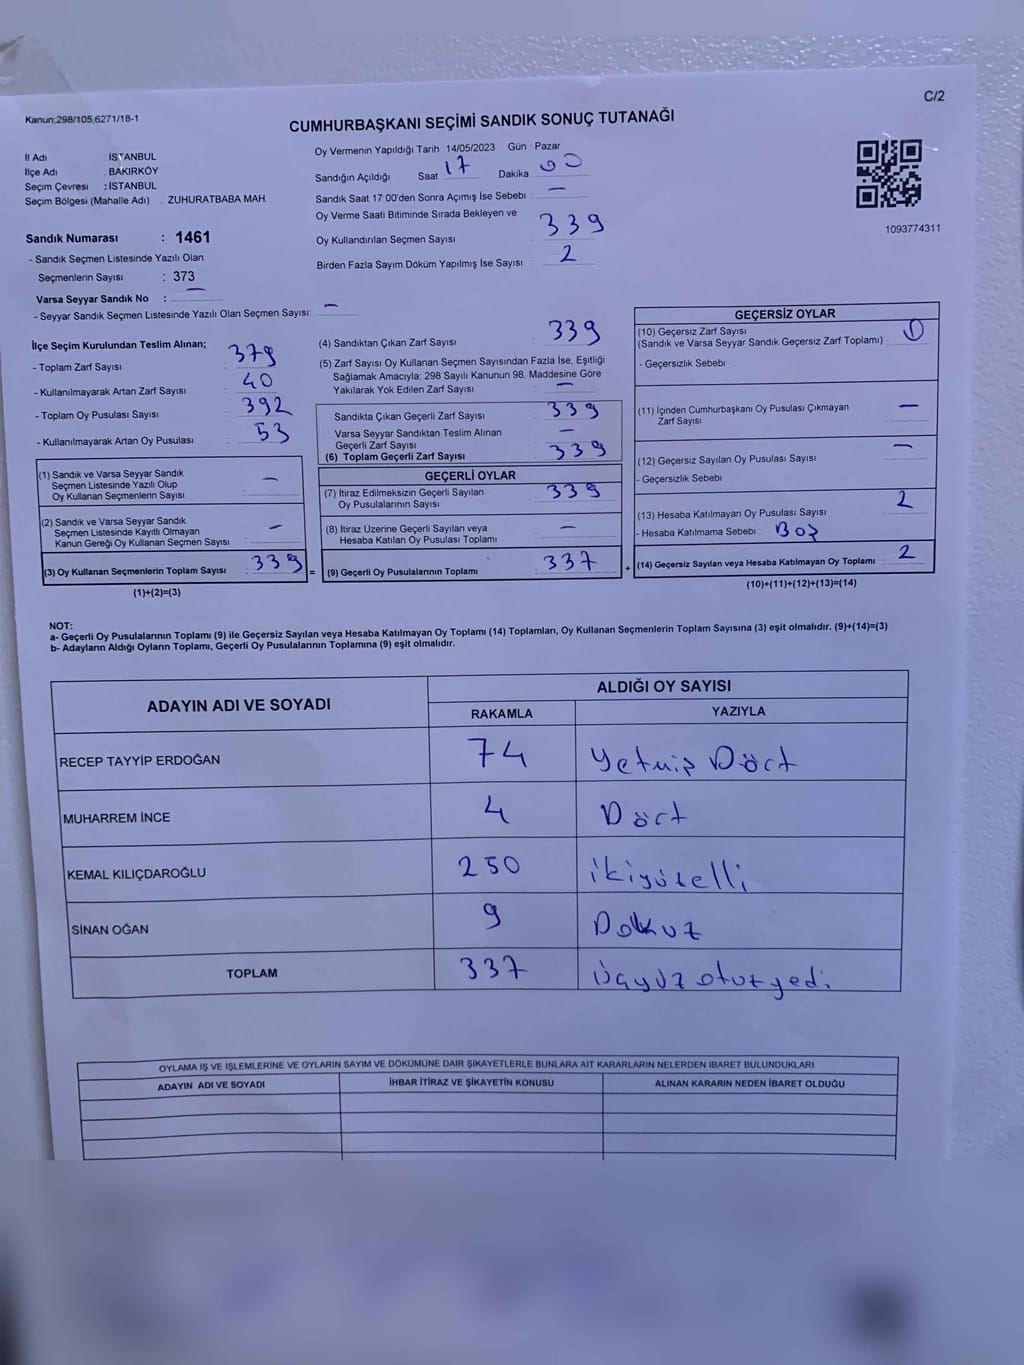 C/2
Kanun:298/105,6271/18-1
CUMHURBAŞKANI SEÇİMİ SANDIK SONUÇ TUTANAĞI
İl Adı : İSTANBUL
İlçe Adı : BAKIRKÖY
Seçim Çevresi : İSTANBUL
Seçim Bölgesi (Mahalle Adı) : ZUHURATBABA MAH.
Sandık Numarası : 1461
- Sandık Seçmen Listesinde Yazılı Olan
Seçmenlerin Sayısı : 373
Varsa Seyyar Sandık No : —
- Seyyar Sandık Seçmen Listesinde Yazılı Olan Seçmen Sayısı: —
Oy Vermenin Yapıldığı Tarih : 14/05/2023 Gün : Pazar
Sandığın Açıldığı Saat 17 Dakika 00
Sandık Saat 17:00'den Sonra Açımış İse Sebebi : —
Oy Verme Saati Bitiminde Sırada Bekleyen ve
Oy Kullandırılan Seçmen Sayısı : 339
Birden Fazla Sayım Döküm Yapılmış İse Sayısı : 2
1093774311
İlçe Seçim Kurulundan Teslim Alınan;
- Toplam Zarf Sayısı : 379
- Kullanılmayarak Artan Zarf Sayısı : 40
- Toplam Oy Pusulası Sayısı : 392
- Kullanılmayarak Artan Oy Pusulası : 53
(1) Sandık ve Varsa Seyyar Sandık
Seçmen Listesinde Yazılı Olup
Oy Kullanan Seçmenlerin Sayısı : —
(2) Sandık ve Varsa Seyyar Sandık
Seçmen Listesinde Kayıtlı Olmayan
Kanun Gereği Oy Kullanan Seçmen Sayısı : —
(3) Oy Kullanan Seçmenlerin Toplam Sayısı : 339 =
(1)+(2)=(3)
(4) Sandıktan Çıkan Zarf Sayısı : 339
(5) Zarf Sayısı Oy Kullanan Seçmen Sayısından Fazla İse, Eşitliği
Sağlamak Amacıyla; 298 Sayılı Kanunun 98. Maddesine Göre
Yakılarak Yok Edilen Zarf Sayısı : —
Sandıkta Çıkan Geçerli Zarf Sayısı : 339
Varsa Seyyar Sandıktan Teslim Alınan
Geçerli Zarf Sayısı : —
(6) Toplam Geçerli Zarf Sayısı : 339
GEÇERLİ OYLAR
(7) İtiraz Edilmeksizin Geçerli Sayılan
Oy Pusulalarının Sayısı : 339
(8) İtiraz Üzerine Geçerli Sayılan veya
Hesaba Katılan Oy Pusulası Toplamı : —
(9) Geçerli Oy Pusulalarının Toplamı : 337 +
GEÇERSİZ OYLAR
(10) Geçersiz Zarf Sayısı
(Sandık ve Varsa Seyyar Sandık Geçersiz Zarf Toplamı) : 0
- Geçersizlik Sebebi :
(11) İçinden Cumhurbaşkanı Oy Pusulası Çıkmayan
Zarf Sayısı : —
(12) Geçersiz Sayılan Oy Pusulası Sayısı : —
- Geçersizlik Sebebi :
(13) Hesaba Katılmayan Oy Pusulası Sayısı : 2
- Hesaba Katılmama Sebebi : Boş
(14) Geçersiz Sayılan veya Hesaba Katılmayan Oy Toplamı : 2
(10)+(11)+(12)+(13)=(14)
NOT:
a- Geçerli Oy Pusulalarının Toplamı (9) ile Geçersiz Sayılan veya Hesaba Katılmayan Oy Toplamı (14) Toplamları, Oy Kullanan Seçmenlerin Toplam Sayısına (3) eşit olmalıdır. (9)+(14)=(3)
b- Adayların Aldığı Oyların Toplamı, Geçerli Oy Pusulalarının Toplamına (9) eşit olmalıdır.
ADAYIN ADI VE SOYADI ALDIĞI OY SAYISI
RAKAMLA YAZIYLA
RECEP TAYYİP ERDOĞAN 74 Yetmiş Dört
MUHARREM İNCE 4 Dört
KEMAL KILIÇDAROĞLU 250 ikiyüzelli
SİNAN OĞAN 9 Dokuz
TOPLAM 337 Üçyüz otuzyedi
OYLAMA İŞ VE İŞLEMLERİNE VE OYLARIN SAYIM VE DÖKÜMÜNE DAİR ŞİKAYETLERLE BUNLARA AİT KARARLARIN NELERDEN İBARET BULUNDUKLARI
ADAYIN ADI VE SOYADI İHBAR İTİRAZ VE ŞİKAYETİN KONUSU ALINAN KARARIN NEDEN İBARET OLDUĞU